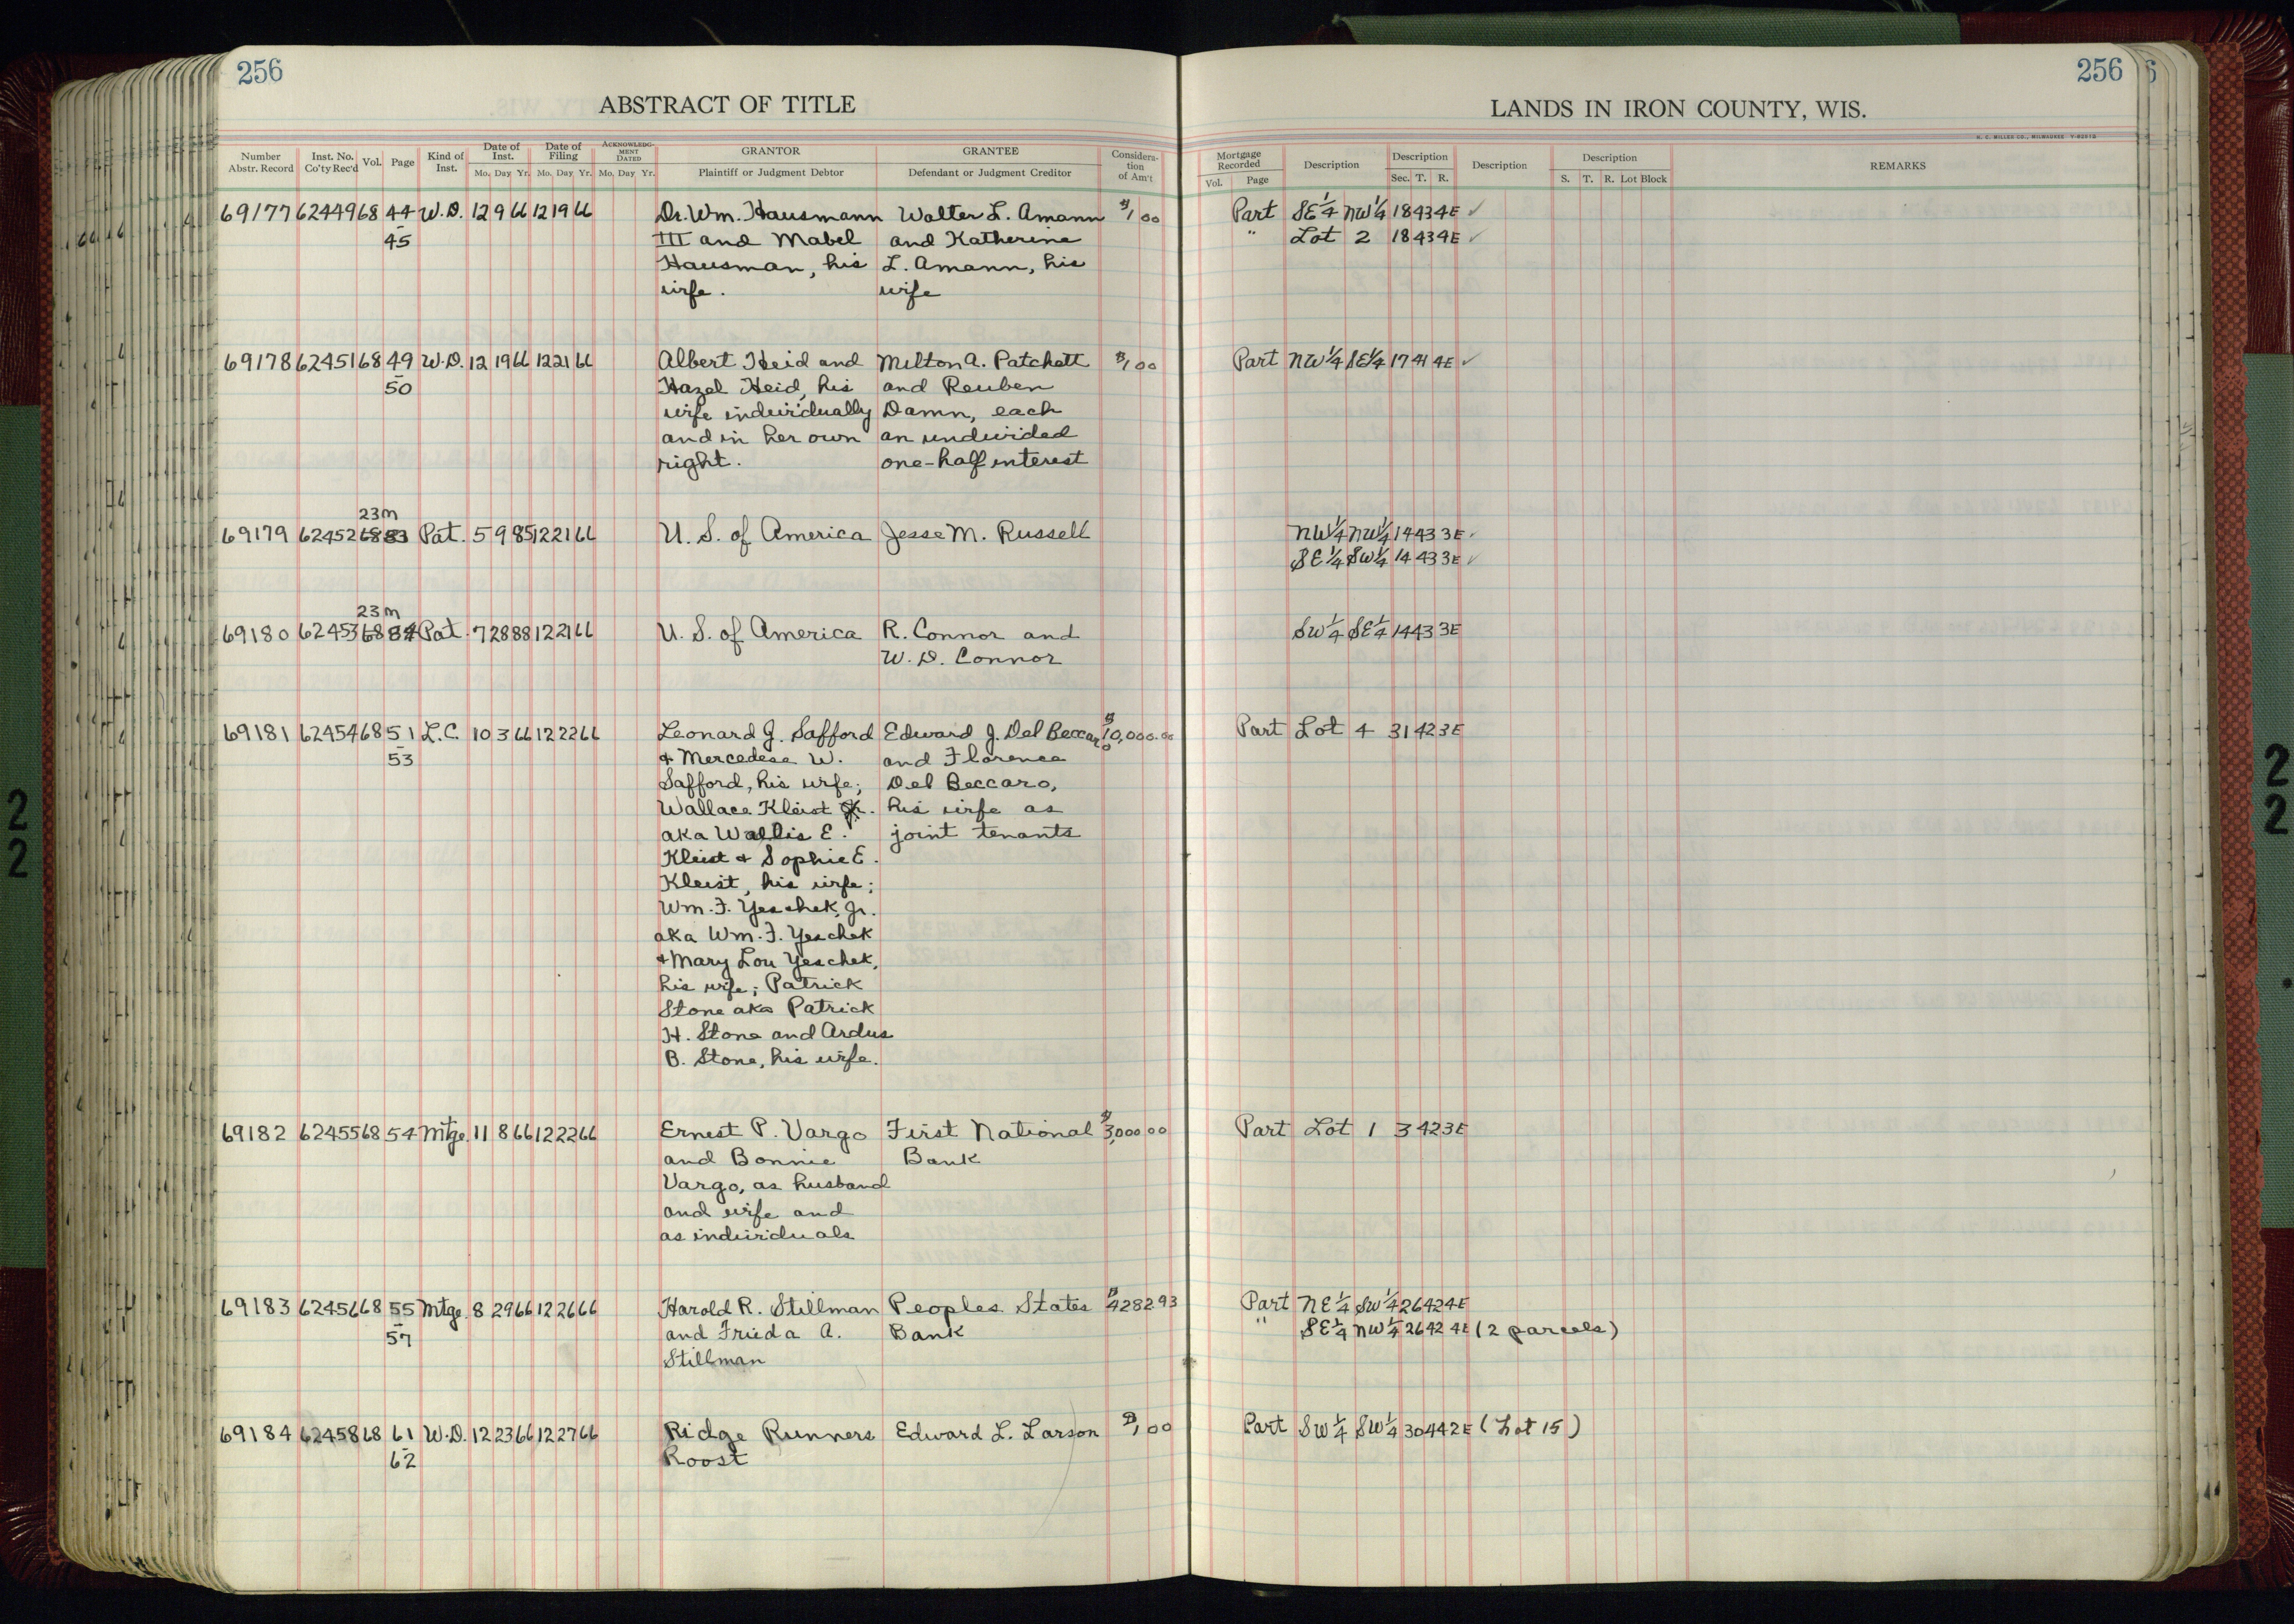 256
256
ABSTRACT OF TITLE
LANDS IN IRON COUNTY, WIS.
H. C. MILLER CO., MILWAUKEE
Number Abstr. Record Inst. No. Co'ty Rec'd Vol. Page Kind of Inst. Date of Inst. Mo. Day Yr. Date of Filing Mo. Day Yr. ACKNOWLEDGMENT DATED Mo. Day Yr. GRANTOR Plaintiff or Judgment Debtor GRANTEE Defendant or Judgment Creditor Consideration of Am't
Mortgage Recorded Vol. Page Description Description Sec. T. R. Description Description S. T. R. Lot Block REMARKS
69177 62449 68 44 W.D. 12 9 66 12 19 66 Dr. Wm. Hausmann Walter L. Amann $1 00 Part SE 1/4 NW 1/4 18 43 4E ✓
45 III and Mabel and Katherine " Lot 2 18 43 4E ✓
Hausman, his L. Amann, his
wife. wife
69178 62451 68 49 W.D. 12 19 66 12 21 66 Albert Heid and Milton A. Patchett $1 00 Part NW 1/4 SE 1/4 17 41 4E ✓
50 Hazel Heid, his and Reuben
wife individually Damn, each
and in her own an undivided
right. one-half interest
23m
69179 62452 68 83 Pat. 5 9 85 12 21 66 U. S. of America Jesse M. Russell NW 1/4 NW 1/4 14 43 3E ✓
SE 1/4 SW 1/4 14 43 3E ✓
23m
69180 62453 68 84 Pat. 7 28 88 12 21 66 U. S. of America R. Connor and SW 1/4 SE 1/4 14 43 3E
W. D. Connor
69181 62454 68 51 L.C. 10 3 66 12 22 66 Leonard J. Safford Edward J. Del Beccaro $10,000.00 Part Lot 4 31 42 3E
53 + Mercedese W. and Florence
Safford, his wife; Del Beccaro,
Wallace Kleist Jr. his wife as
aka Wallis E. joint tenants
Kleist + Sophie E.
Kleist, his wife;
Wm. F. Yeschek, Jr.
aka Wm. F. Yeschek
+ Mary Lou Yeschek,
his wife; Patrick
Stone aka Patrick
H. Stone and Ardus
B. Stone, his wife.
69182 62455 68 54 Mtge. 11 8 66 12 22 66 Ernest P. Vargo First National $3,000 00 Part Lot 1 3 42 3E
and Bonnie Bank
Vargo, as husband
and wife and
as individuals
69183 62456 68 55 Mtge. 8 29 66 12 26 66 Harold R. Stillman Peoples States $4282.93 Part NE 1/4 SW 1/4 26 42 4E
57 and Frieda A. Bank " SE 1/4 NW 1/4 26 42 4E (2 parcels)
Stillman
69184 62458 68 61 W.D. 12 23 66 12 27 66 Ridge Runners Edward L. Larson $1 00 Part SW 1/4 SW 1/4 30 44 2E (Lot 15)
62 Roost
2
2
2
2